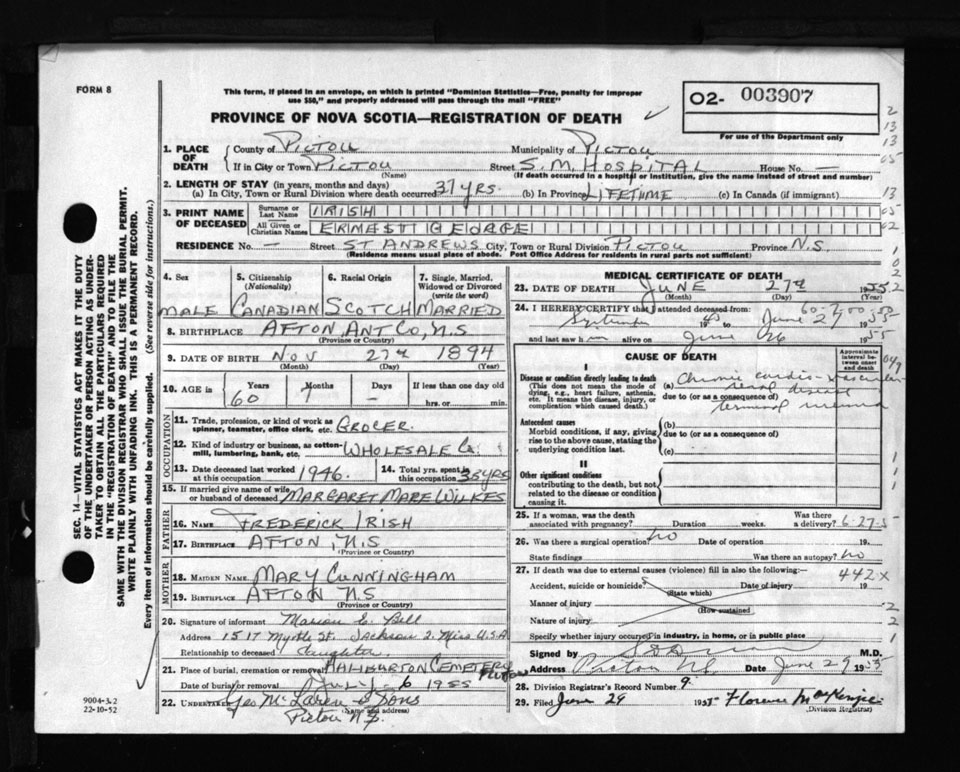 FORM 8
This form, if placed in an envelope, on which is printed "Dominion Statistics—Free, penalty for improper
use $50," and properly addressed will pass through the mail "FREE"
PROVINCE OF NOVA SCOTIA—REGISTRATION OF DEATH
O2- 003907
For use of the Department only
1. PLACE OF DEATH
County of PICTOU Municipality of PICTOU
If in City or Town PICTOU Street S. M. HOSPITAL House No. —
(Name) (If death occurred in a hospital or institution, give the name instead of street and number)
2. LENGTH OF STAY (in years, months and days)
(a) In City, Town or Rural Division where death occurred 37 YRS. (b) In Province LIFETIME (c) In Canada (if immigrant)
3. PRINT NAME OF DECEASED
Surname or Last Name IRISH
All Given or Christian Names ERNEST GEORGE
RESIDENCE No. — Street ST ANDREWS City, Town or Rural Division PICTOU Province N.S.
(Residence means usual place of abode. Post Office Address for residents in rural parts not sufficient)
4. Sex MALE
5. Citizenship (Nationality) CANADIAN
6. Racial Origin SCOTCH
7. Single, Married, Widowed or Divorced (write the word) MARRIED
8. BIRTHPLACE AFTON, ANT CO, N.S
(Province or Country)
9. DATE OF BIRTH NOV 27th 1894
(Month) (Day) (Year)
10. AGE IS Years 60 Months 7 Days — If less than one day old
hrs. or min.
OCCUPATION
11. Trade, profession, or kind of work as spinner, teamster, office clerk, etc. GROCER.
12. Kind of industry or business, as cotton-mill, lumbering, bank, etc. WHOLESALE Co.
13. Date deceased last worked at this occupation 1946.
14. Total yrs. spent in this occupation 35 YRS
15. If married give name of wife or husband of deceased MARGARET MARE WILKES
FATHER
16. NAME FREDERICK IRISH
17. BIRTHPLACE AFTON, N.S
(Province or Country)
MOTHER
18. MAIDEN NAME MARY CUNNINGHAM
19. BIRTHPLACE AFTON N.S
(Province or Country)
20. Signature of informant Marion E. Bell
Address 1517 Myrtle St. Jackson 2. Miss U.S.A
Relationship to deceased Daughter.
21. Place of burial, cremation or removal HALIBURTON CEMETERY Pictou
Date of burial or removal July 6 1955
22. UNDERTAKER Geo McLaren & Sons
(Name and address)
Pictou N.S.
MEDICAL CERTIFICATE OF DEATH
23. DATE OF DEATH JUNE 27th 1955
(Month) (Day) (Year)
24. I HEREBY CERTIFY that I attended deceased from:
September 19 to June 27 1955
and last saw him alive on June 26 1955
CAUSE OF DEATH
Approximate interval between onset and death
I
Disease or condition directly leading to death
(This does not mean the mode of dying, e.g., heart failure, asthenia, etc. It means the disease, injury, or complication which caused death.)
(a) Chronic cardio-vascular
renal disease
due to (or as a consequence of)
terminal uraemia
Antecedent causes
Morbid conditions, if any, giving rise to the above cause, stating the underlying condition last.
(b)
due to (or as a consequence of)
(c)
II
Other significant conditions
contributing to the death, but not related to the disease or condition causing it.
25. If a woman, was the death associated with pregnancy? Duration weeks. Was there a delivery? 6-27-5
26. Was there a surgical operation? no Date of operation 19
State findings Was there an autopsy? no
27. If death was due to external causes (violence) fill in also the following:— 442x
Accident, suicide or homicide? Date of injury 19
(State which)
Manner of injury
(How sustained)
Nature of injury
Specify whether injury occurred in industry, in home, or in public place
Signed by M.D.
Address Pictou NS Date June 29 1955
28. Division Registrar's Record Number 9
29. Filed June 29 1955 Florence MacKenzie
(Division Registrar)
SEC. 14—VITAL STATISTICS ACT MAKES IT THE DUTY
OF THE UNDERTAKER OR PERSON ACTING AS UNDER-
TAKER TO OBTAIN ALL THE PARTICULARS REQUIRED
IN THE "REGISTRATION OF DEATH" AND TO FILE THE
SAME WITH THE DIVISION REGISTRAR WHO SHALL ISSUE THE BURIAL PERMIT.
WRITE PLAINLY WITH UNFADING INK. THIS IS A PERMANENT RECORD.
Every item of information should be carefully supplied. (See reverse side for instructions.)
9004-3.2
22-10-52